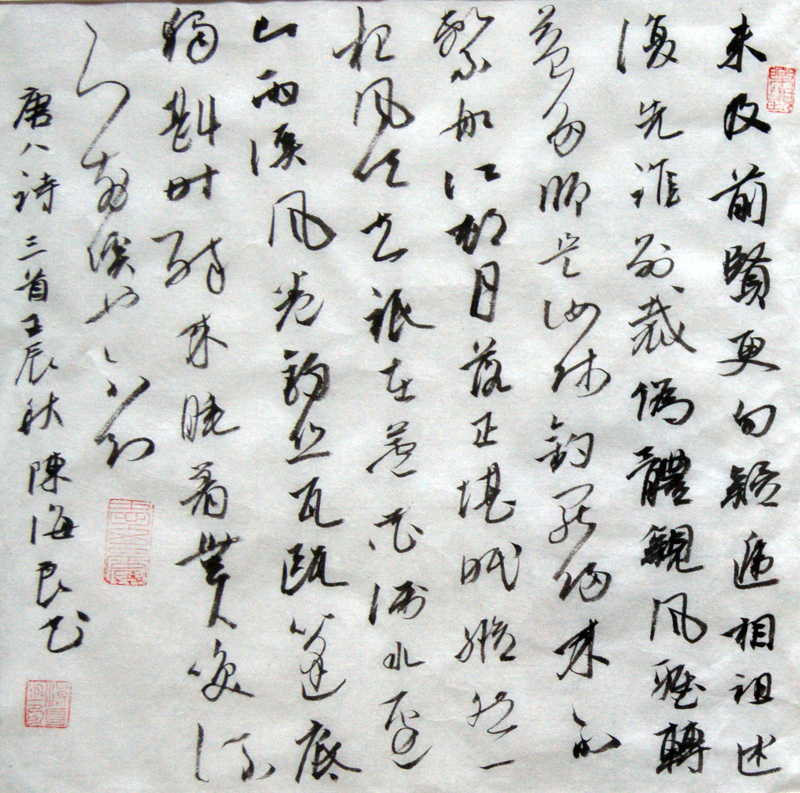 未及前賢更勿疑遞相祖述
復先誰別裁偽體親風雅轉
益多師是汝師釣罷歸來不
繫船江村月落正堪眠縱然一
夜風吹去祇在蘆花淺水邊
山雨溪風卷釣絲瓦甌篷底
獨斟時醉來睡着無人喚流
到前溪也不知
唐人詩三首壬辰秋陳海良書